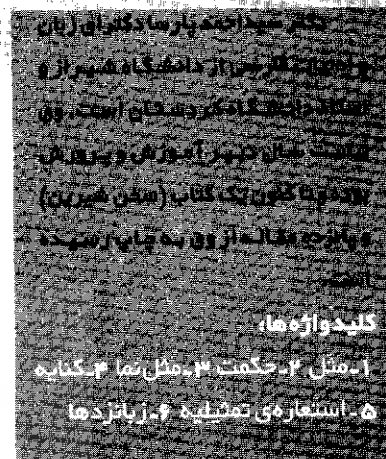 دکتر سیداحمد پارسا دکترای زبان
و ادبیات فارسی از دانشگاه شیراز و
استاد دانشگاه کردستان است. وی
سال دبیر آموزش و پرورش
بوده و تاکنون یک کتاب (سخن شیرین)
و پانزده مقاله از وی به چاپ رسیده
است.
کلیدواژه‌ها:
۱ـ مثل ۲ـ حکمت ۳ـ مثل‌نما ۴ـ کنایه
۵ ـ استعاره‌ی تمثیلیه ۶ـ زبانزدها